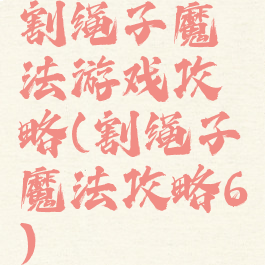 割绳子魔
法游戏攻
略(割绳子
魔法攻略6
)